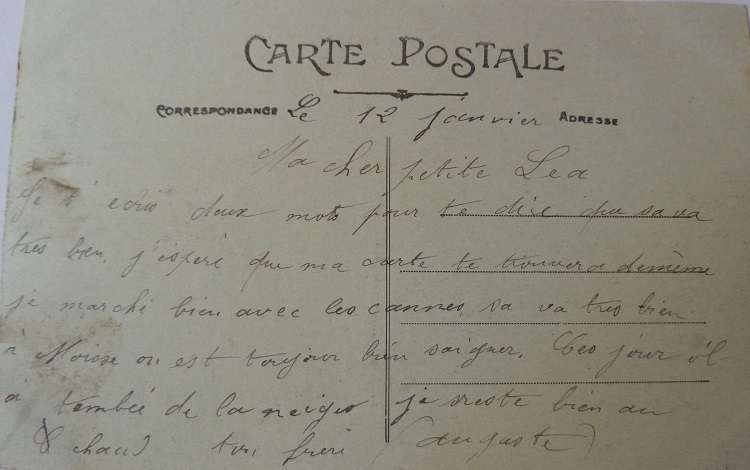 CARTE POSTALE
CORRESPONDANCE Le 12 janvier ADRESSE
Ma cher petite Lea
Je t'ecris deux mots pour te dire que sa va
tres bien, j'espere que ma carte te trouvera demême
je marche bien avec les cannes, sa va tres bien
a Moisse on est toujour bien saigner. Ces jour s'il
a tombée de la neige je reste bien au
chaud ton frere (auguste)